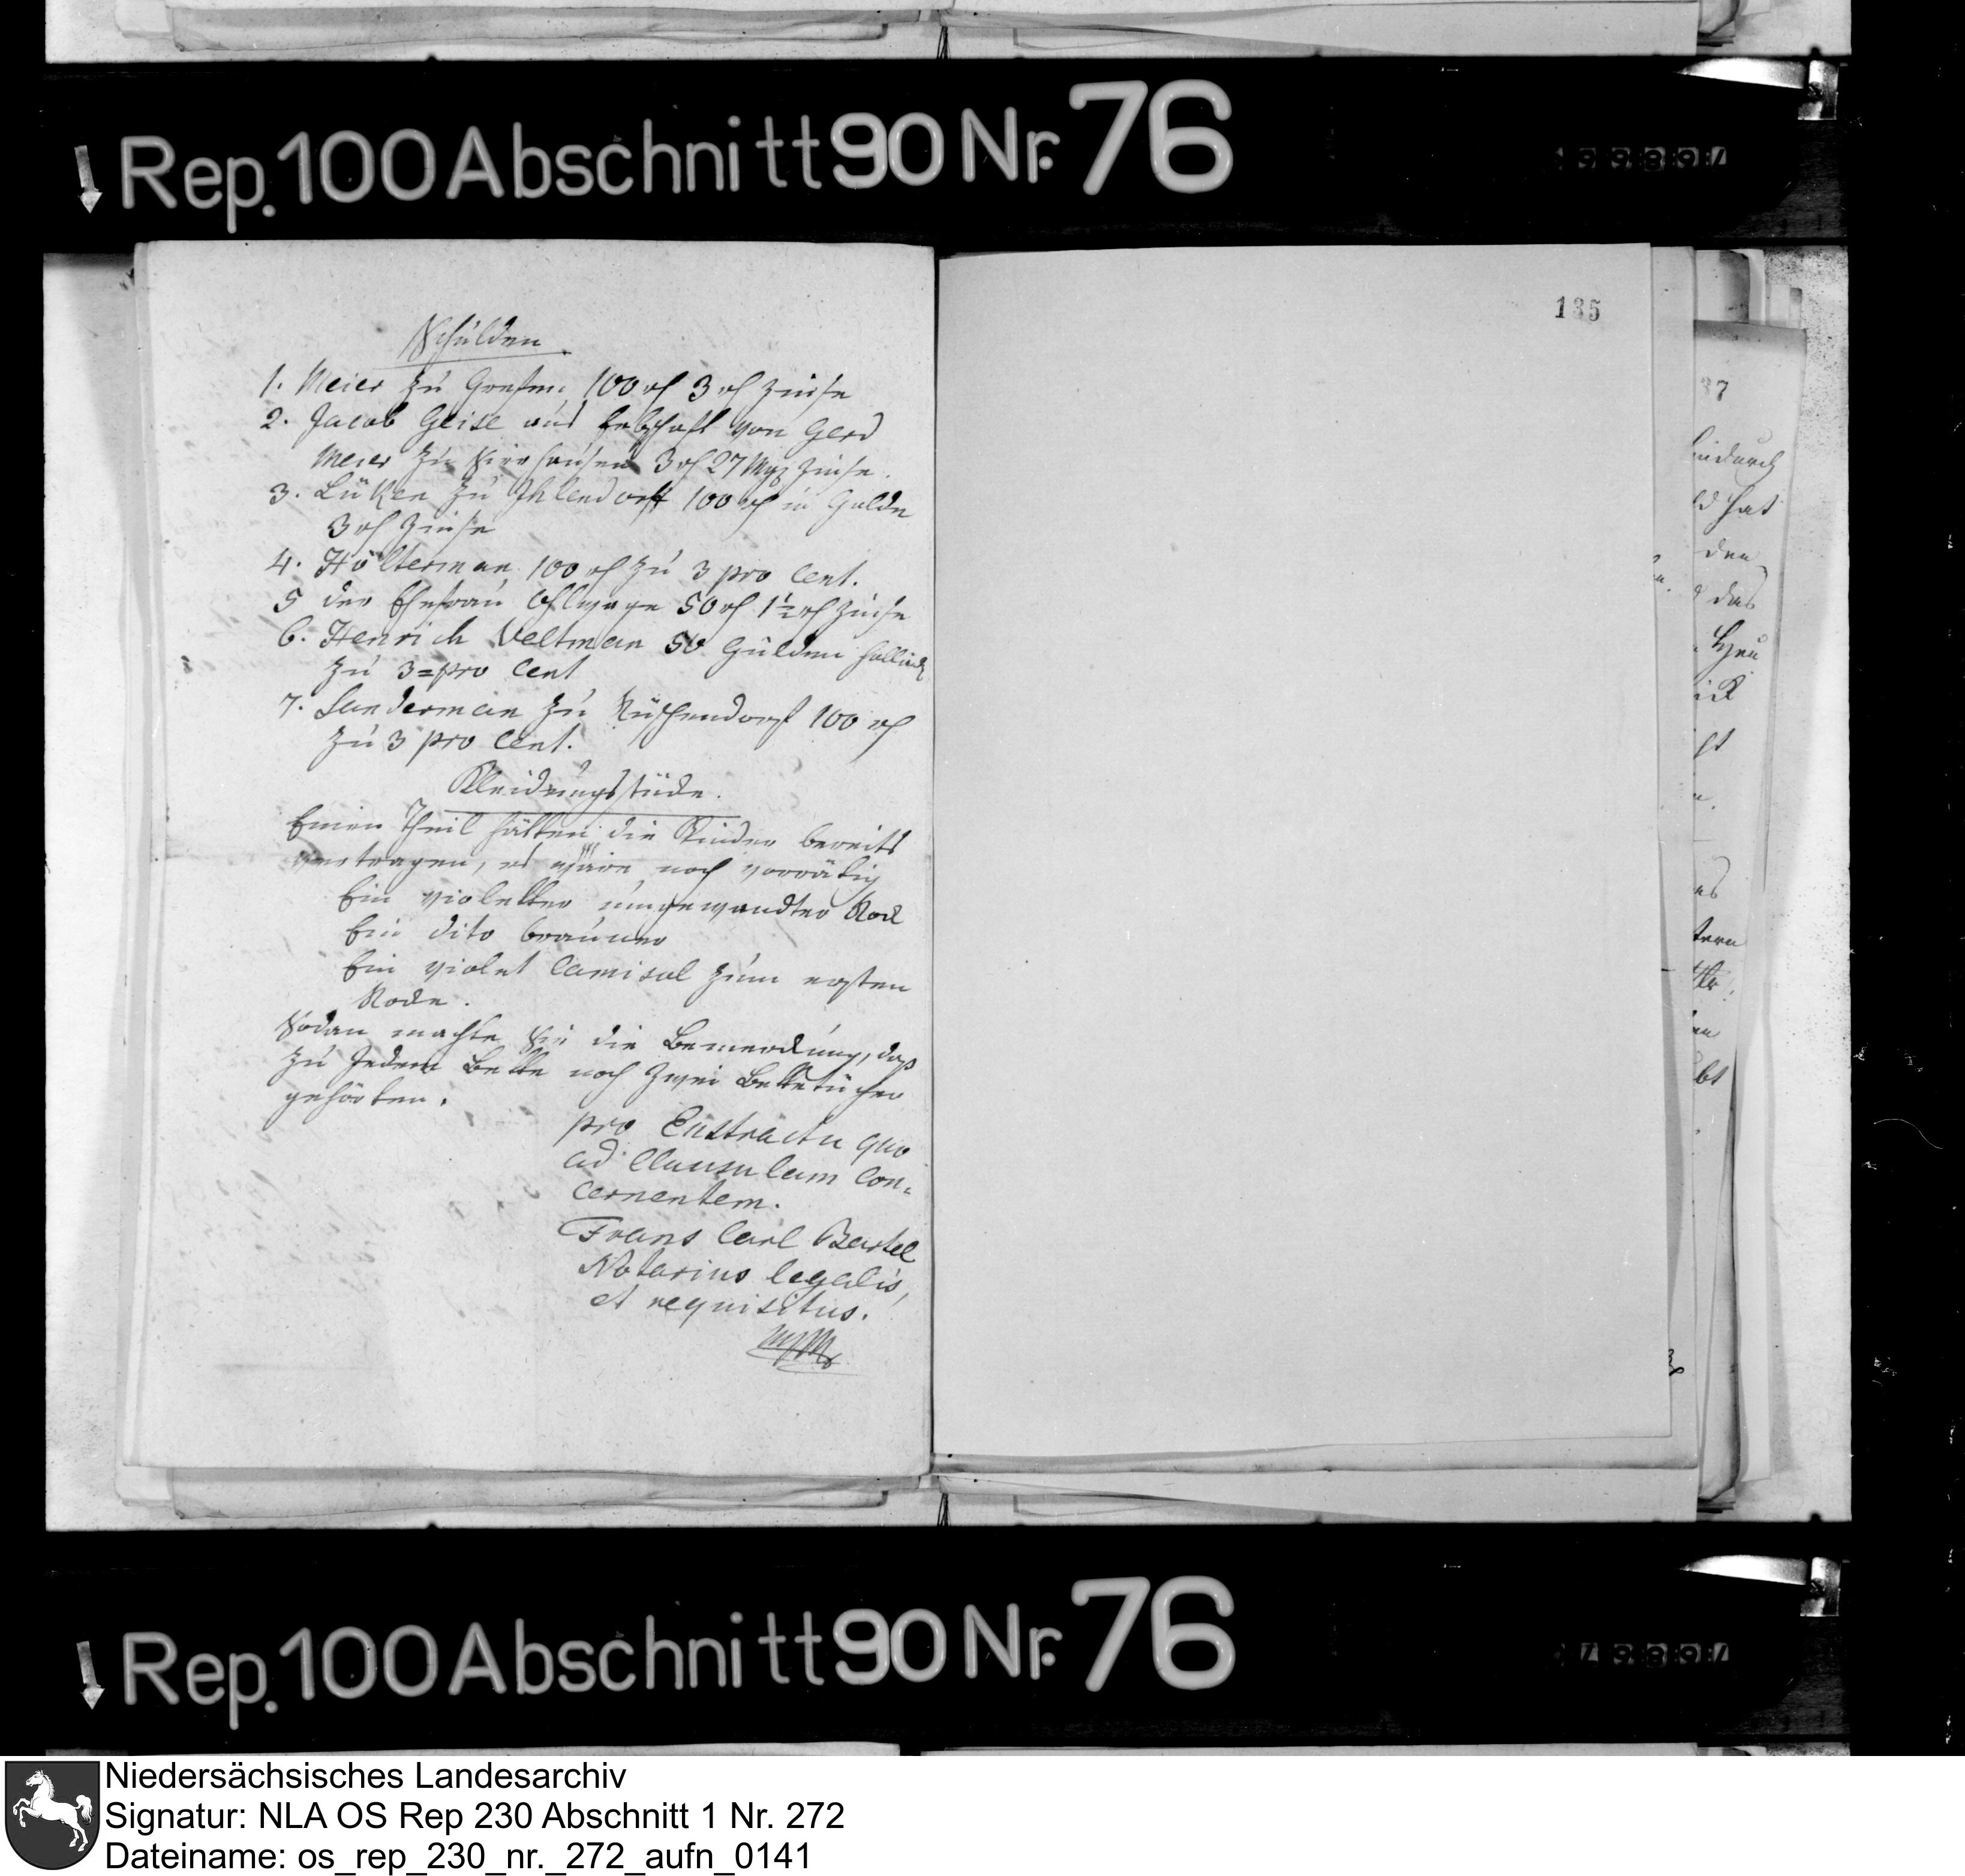 Rep. 100 Abschnitt 90 Nr. 76
135
Schulden
1. Meier zu Grefen 100 rh 3 rh Zinse
2. Jacob Geise aus Erbschaft von Gerd
Meier zu Sierhausen 3 rh 27 Mgz Zinse.
3. Lüken zu Ihlendorff 100 rh in Golde
3 rh Zinse
4. Hölterman 100 rh zu 3 pro Cent.
5 der Ehefrau 50 rh 1½ rh Zinse
6. Henrich Veltman 50 Gulden holländ
zu 3 = pro Cent
7. Sanderman zu Rüschendorf 100 rh
zu 3 pro Cent.
Kleidungsstücke.
Einen Theil hätten die Kinder bereits
vertragen, es wäre noch vorrätig
Ein violetter umgewandter Rock
Ein dito brauner
Ein violet Camisol zum ersten
Rocke.
Sodan machte Sie die Bemerckung, daß
zu Jedem Bette noch zwei Bettetücher
gehörten.
pro Extractu quo
ad Clausulam Con=
cernentem.
Frans Carl Bartel
Notarius legalis,
et requisitus.
37
hindurch
hat
den
das
ick
bt
Rep. 100 Abschnitt 90 Nr. 76
Niedersächsisches Landesarchiv
Signatur: NLA OS Rep 230 Abschnitt 1 Nr. 272
Dateiname: os_rep_230_nr._272_aufn_0141